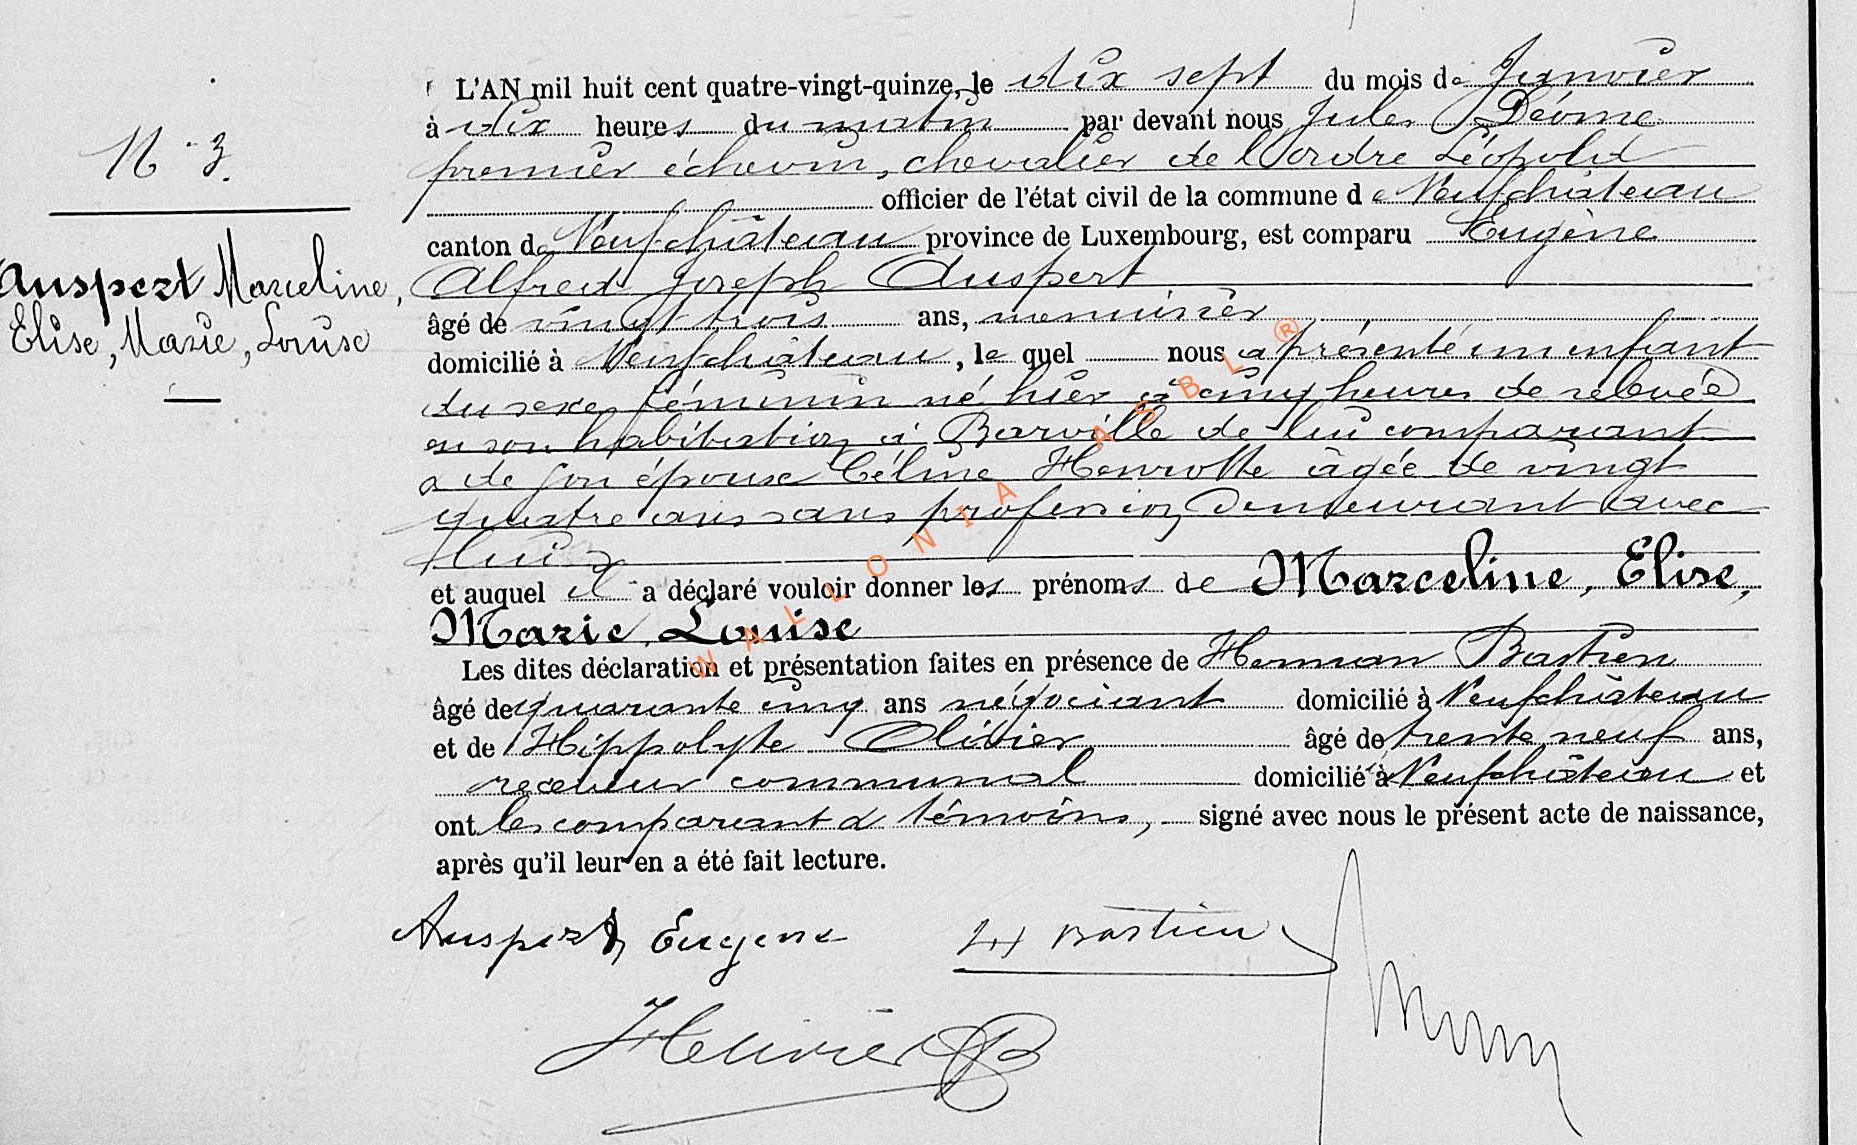 L'AN mil huit cent quatre-vingt-quinze, le dix sept du mois de Janvier
à dix heures du matin par devant nous Jules Déome
N° 3.
premier échevin, chevalier de l'ordre Léopold
officier de l'état civil de la commune de Neufchâteau
canton de Neufchâteau province de Luxembourg, est comparu Eugène
Auspert Marceline,
Elise, Marie, Louise
Alfred Joseph Auspert
âgé de vingt trois ans, menuisier
domicilié à Neufchâteau, le quel nous a présenté un enfant
du sexe féminin né hier à cinq heures de relevée
en son habitation à Barville de lui comparant
& de son épouse Céline Henrotte âgée de vingt
quatre ans sans profession demeurant avec
lui
et auquel il a déclaré vouloir donner les prénoms de Marceline, Elise,
Marie, Louise
Les dites déclaration et présentation faites en présence de Herman Bastien
âgé de quarante cinq ans négociant domicilié à Neufchâteau
et de Hippolyte Olivier âgé de trente neuf ans,
receveur communal domicilié à Neufchâteau et
ont les comparant & témoins, signé avec nous le présent acte de naissance,
après qu'il leur en a été fait lecture.
Auspert Eugene H Bastien
HOlivier
WALLONIA ASBL ®